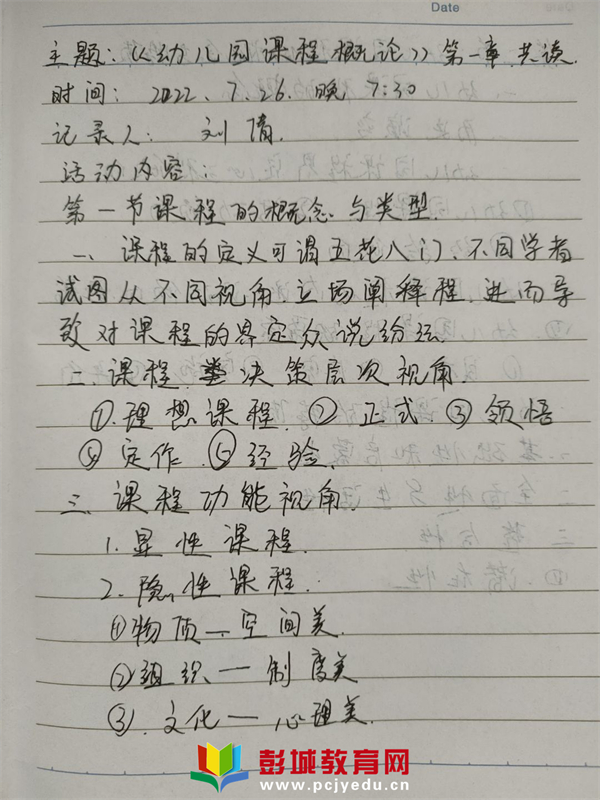 Date
主题：《幼儿园课程概论》第一章共读.
时间：2022.7.26.晚 7:30
记录人：刘倩.
活动内容：
第一节课程的概念与类型.
一、课程的定义可谓五花八门、不同学者
试图从不同视角、立场阐释程，进而导
致对课程的界定众说纷纭.
二、课程 决策层次视角.
①.理想课程.②正式.③领悟
④定作.⑤经验.
三、课程功能视角.
1.显性课程.
2.隐性课程.
①物质—空间美.
②组织—制度美
③.文化—心理美.
彭城教育网
www.pcjyedu.cn